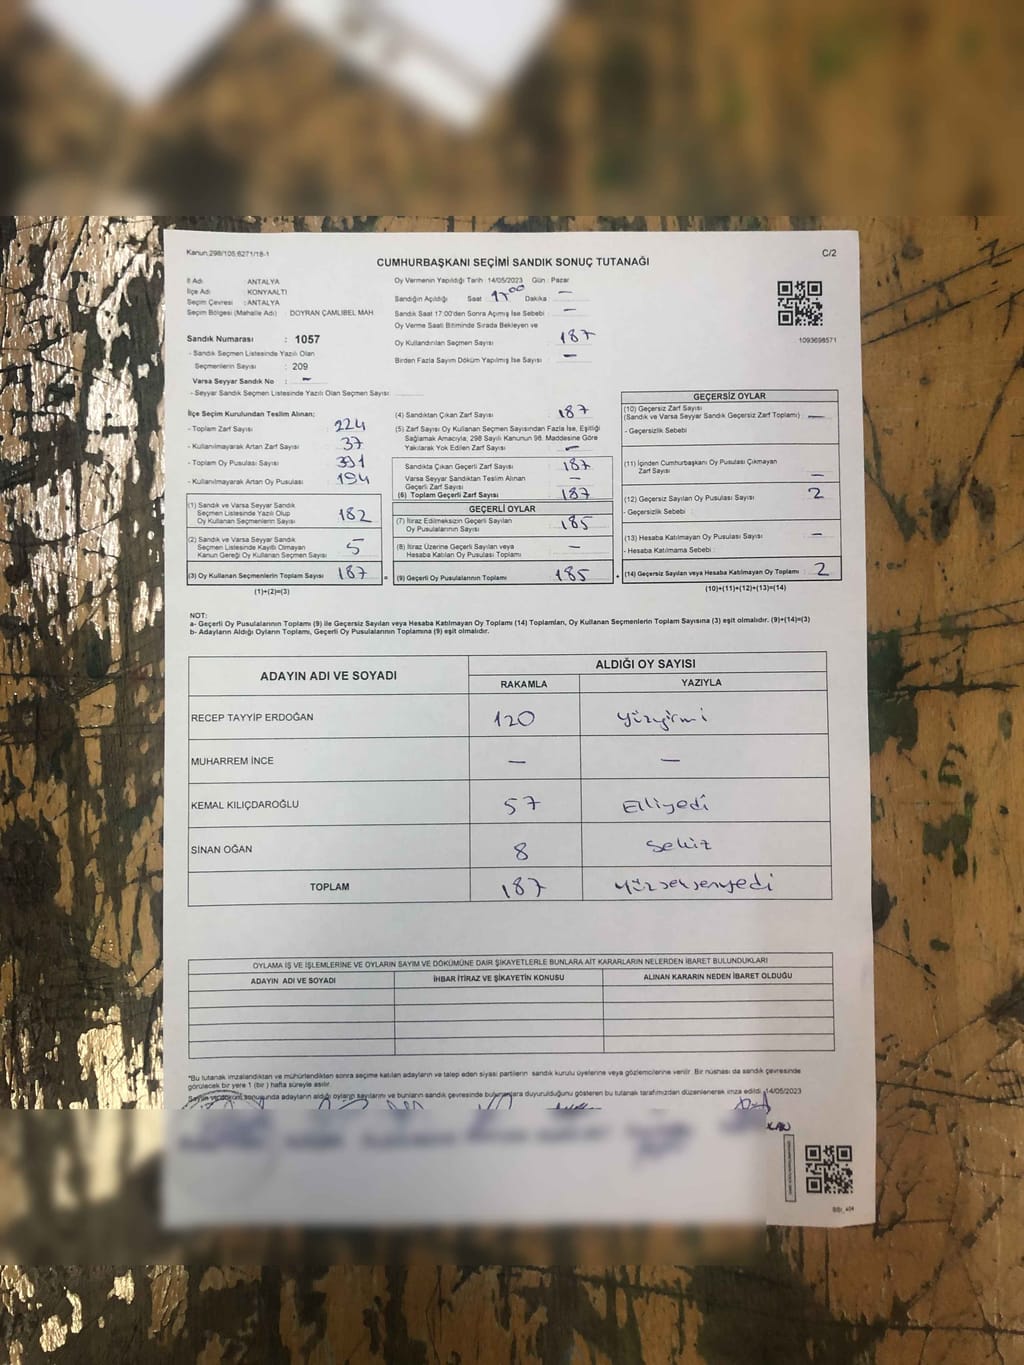 Kanun:298/105;6271/18-1
C/2
CUMHURBAŞKANI SEÇİMİ SANDIK SONUÇ TUTANAĞI
İl Adı : ANTALYA
İlçe Adı : KONYAALTI
Seçim Çevresi : ANTALYA
Seçim Bölgesi (Mahalle Adı) : DOYRAN ÇAMLIBEL MAH
Sandık Numarası : 1057
- Sandık Seçmen Listesinde Yazılı Olan
Seçmenlerin Sayısı : 209
Varsa Seyyar Sandık No : –
- Seyyar Sandık Seçmen Listesinde Yazılı Olan Seçmen Sayısı
Oy Vermenin Yapıldığı Tarih : 14/05/2023 Gün : Pazar
Sandığın Açıldığı Saat 17 00 Dakika –
Sandık Saat 17:00'den Sonra Açımış İse Sebebi : –
Oy Verme Saati Bitiminde Sırada Bekleyen ve
Oy Kullandırılan Seçmen Sayısı : 187
Birden Fazla Sayım Döküm Yapılmış İse Sayısı : –
1093698571
İlçe Seçim Kurulundan Teslim Alınan;
- Toplam Zarf Sayısı : 224
- Kullanılmayarak Artan Zarf Sayısı : 37
- Toplam Oy Pusulası Sayısı : 391
- Kullanılmayarak Artan Oy Pusulası : 194
(1) Sandık ve Varsa Seyyar Sandık
Seçmen Listesinde Yazılı Olup
Oy Kullanan Seçmenlerin Sayısı : 182
(2) Sandık ve Varsa Seyyar Sandık
Seçmen Listesinde Kayıtlı Olmayan
Kanun Gereği Oy Kullanan Seçmen Sayısı : 5
(3) Oy Kullanan Seçmenlerin Toplam Sayısı : 187
(1)+(2)=(3)
=
(4) Sandıktan Çıkan Zarf Sayısı : 187
(5) Zarf Sayısı Oy Kullanan Seçmen Sayısından Fazla İse, Eşitliği
Sağlamak Amacıyla, 298 Sayılı Kanunun 98. Maddesine Göre
Yakılarak Yok Edilen Zarf Sayısı : –
Sandıkta Çıkan Geçerli Zarf Sayısı : 187
Varsa Seyyar Sandıktan Teslim Alınan
Geçerli Zarf Sayısı : –
(6) Toplam Geçerli Zarf Sayısı : 187
GEÇERLİ OYLAR
(7) İtiraz Edilmeksizin Geçerli Sayılan
Oy Pusulalarının Sayısı : 185
(8) İtiraz Üzerine Geçerli Sayılan veya
Hesaba Katılan Oy Pusulası Toplamı : –
(9) Geçerli Oy Pusulalarının Toplamı : 185
+
GEÇERSİZ OYLAR
(10) Geçersiz Zarf Sayısı
(Sandık ve Varsa Seyyar Sandık Geçersiz Zarf Toplamı) : –
- Geçersizlik Sebebi
(11) İçinden Cumhurbaşkanı Oy Pusulası Çıkmayan
Zarf Sayısı : –
(12) Geçersiz Sayılan Oy Pusulası Sayısı : 2
- Geçersizlik Sebebi :
(13) Hesaba Katılmayan Oy Pusulası Sayısı : –
- Hesaba Katılmama Sebebi :
(14) Geçersiz Sayılan veya Hesaba Katılmayan Oy Toplamı : 2
(10)+(11)+(12)+(13)=(14)
NOT:
a- Geçerli Oy Pusulalarının Toplamı (9) ile Geçersiz Sayılan veya Hesaba Katılmayan Oy Toplamı (14) Toplamları, Oy Kullanan Seçmenlerin Toplam Sayısına (3) eşit olmalıdır. (9)+(14)=(3)
b- Adayların Aldığı Oyların Toplamı, Geçerli Oy Pusulalarının Toplamına (9) eşit olmalıdır.
ADAYIN ADI VE SOYADI
ALDIĞI OY SAYISI
RAKAMLA YAZIYLA
RECEP TAYYİP ERDOĞAN 120 Yüzyirmi
MUHARREM İNCE – –
KEMAL KILIÇDAROĞLU 57 Elliyedi
SİNAN OĞAN 8 Sekiz
TOPLAM 187 Yüzseksenyedi
OYLAMA İŞ VE İŞLEMLERİNE VE OYLARIN SAYIM VE DÖKÜMÜNE DAİR ŞİKAYETLERLE BUNLARA AİT KARARLARIN NELERDEN İBARET BULUNDUKLARI
ADAYIN ADI VE SOYADI İHBAR İTİRAZ VE ŞİKAYETİN KONUSU ALINAN KARARIN NEDEN İBARET OLDUĞU
*Bu tutanak imzalandıktan ve mühürlendikten sonra seçime katılan adayların ve talep eden siyasi partilerin sandık kurulu üyelerine veya gözlemcilerine verilir. Bir nüshası da sandık çevresinde
görülecek bir yere 1 (bir) hafta süreyle asılır.
Sayım ve döküm sonusunda adayların aldığı oyların sayılarını ve bunların sandık çevresinde bulunanlara duyurulduğunu gösteren bu tutanak tarafımızdan düzenlenerek imza edildi. 14/05/2023